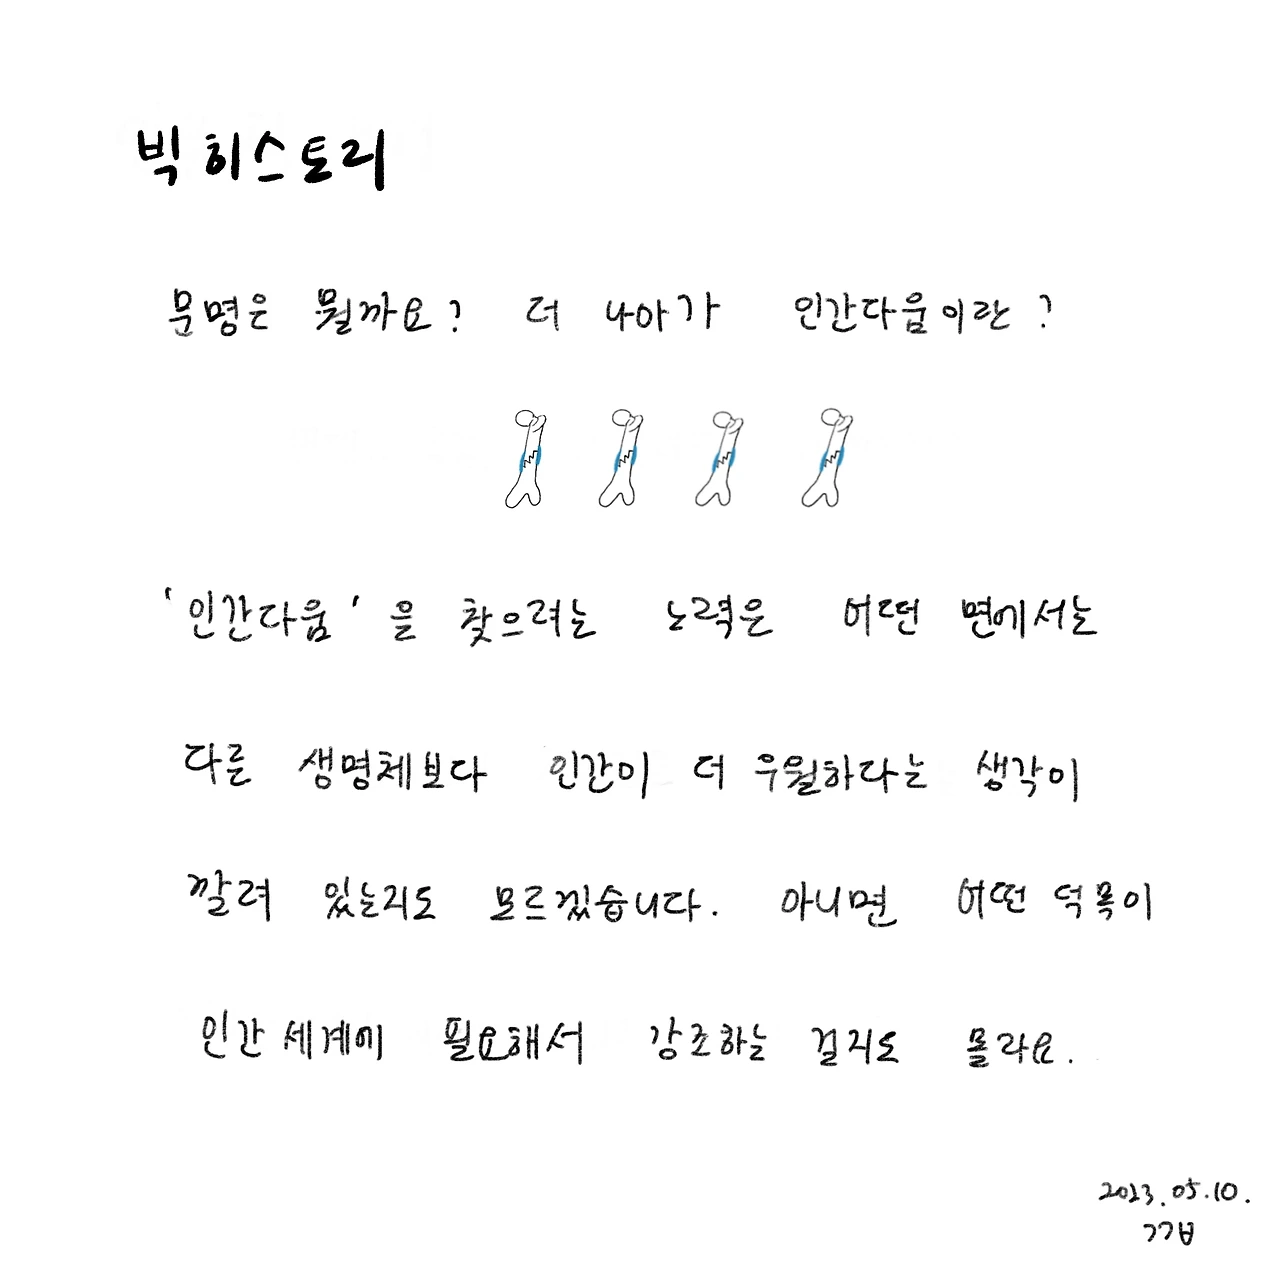 빅 히스토리
문명은 뭘까요? 더 나아가 인간다움이란?
'인간다움'을 찾으려는 노력은 어떤 면에서는
다른 생명체보다 인간이 더 우월하다는 생각이
깔려 있는지도 모르겠습니다. 아니면 어떤 덕목이
인간 세계에 필요해서 강조하는 걸지도 몰라요.
2023.05.10.
ㄱㄱㅂ